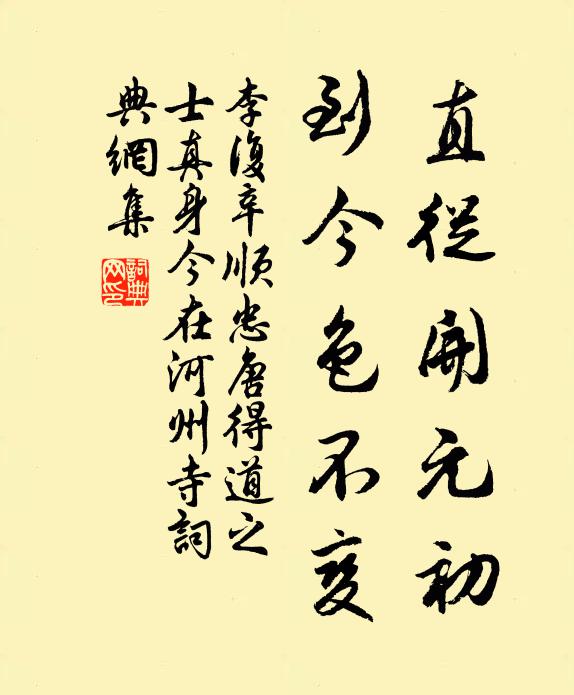 直從開元初
到今色不变
李復辛順忠唐得道之
士真身今在河州寺詞
典網集
詞典
网印